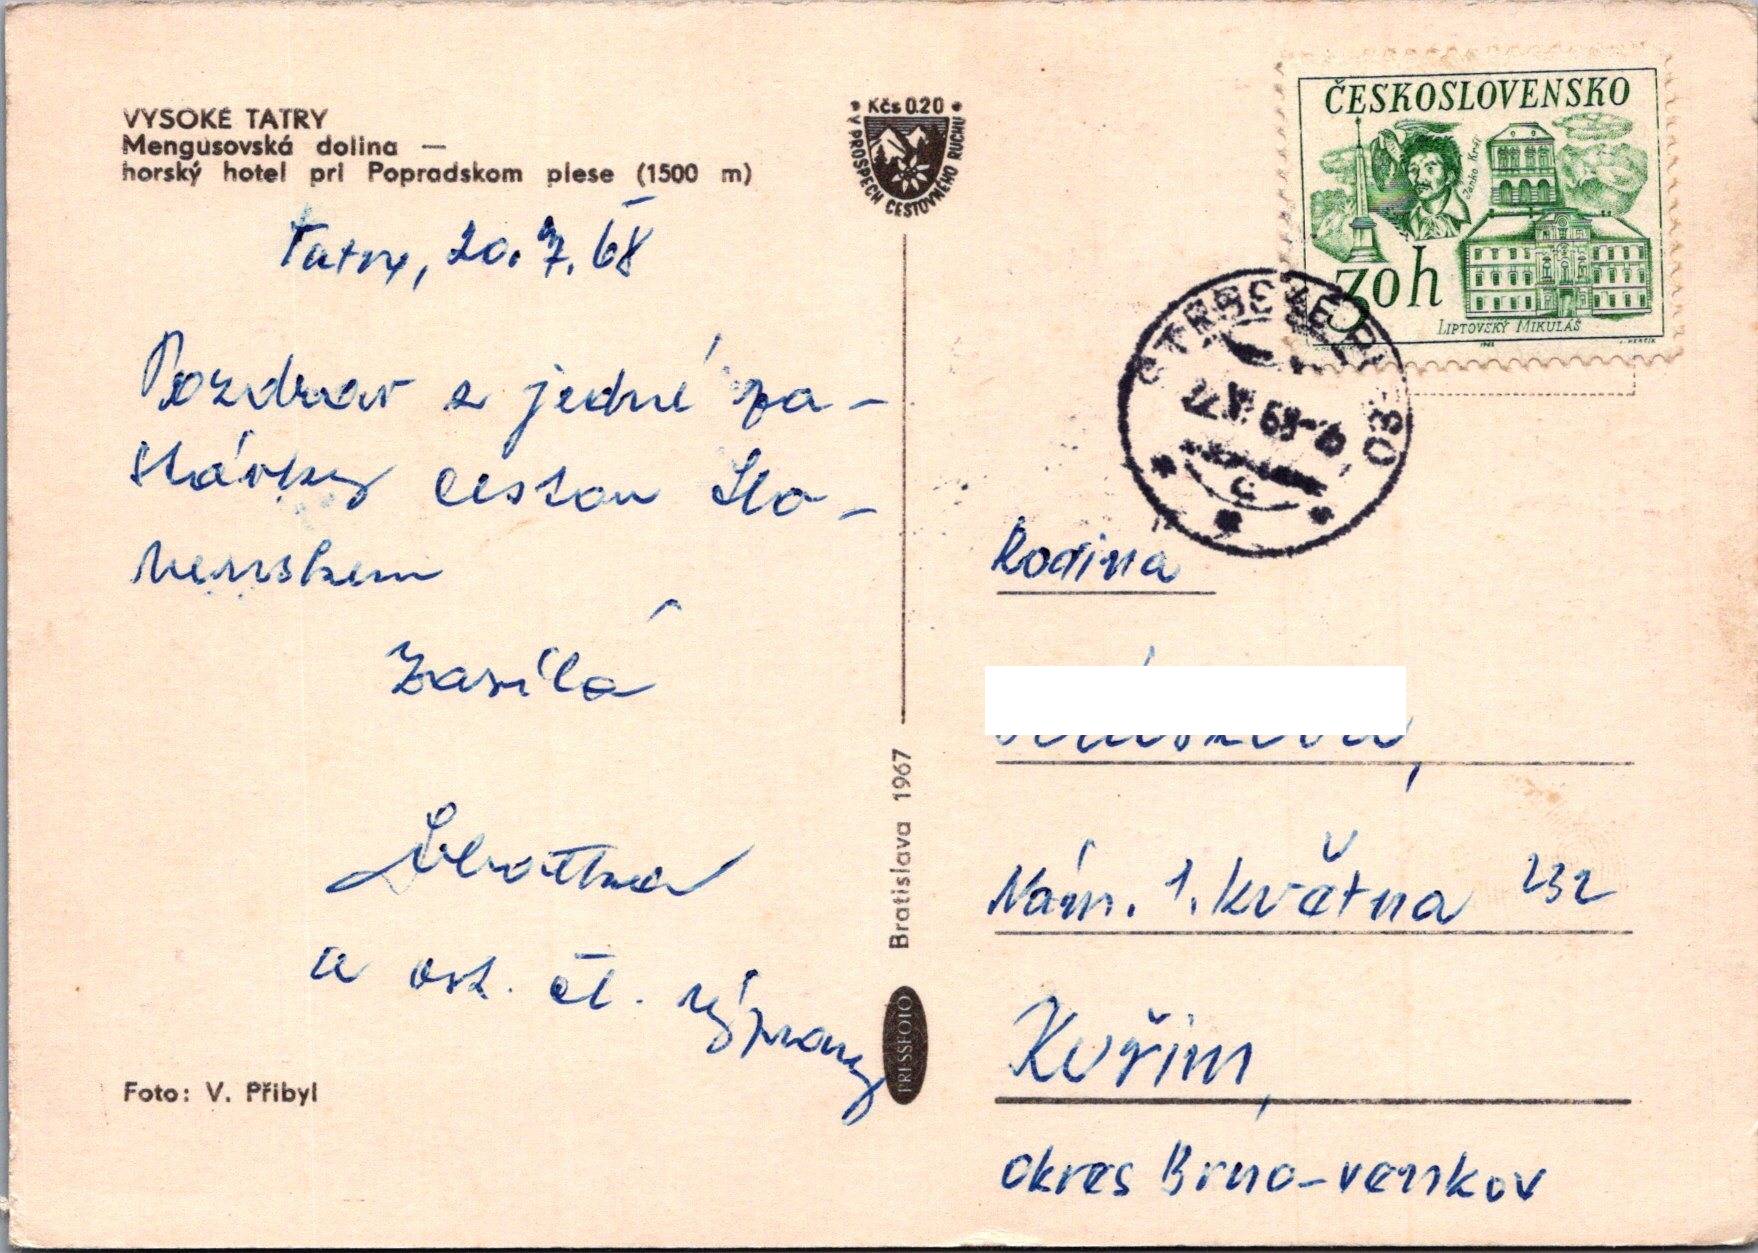 VYSOKÉ TATRY
Mengusovská dolina —
horský hotel pri Popradskom plese (1500 m)
Kčs 0.20
V PROSPECH CESTOVNÉHO RUCHU
ČESKOSLOVENSKO
Janko Kráľ
30 h
LIPTOVSKÝ MIKULÁŠ
Tatry, 20. 7. 68
Pozdrav z jedné za-
stávky cestou Slo-
venskem
zasílá
a ost. čl. výpravy
Foto: V. Přibyl
Bratislava 1967
PRESSFOTO
03
c
Rodina
Nám. 1. května 232
Kuřim,
okres Brno-venkov